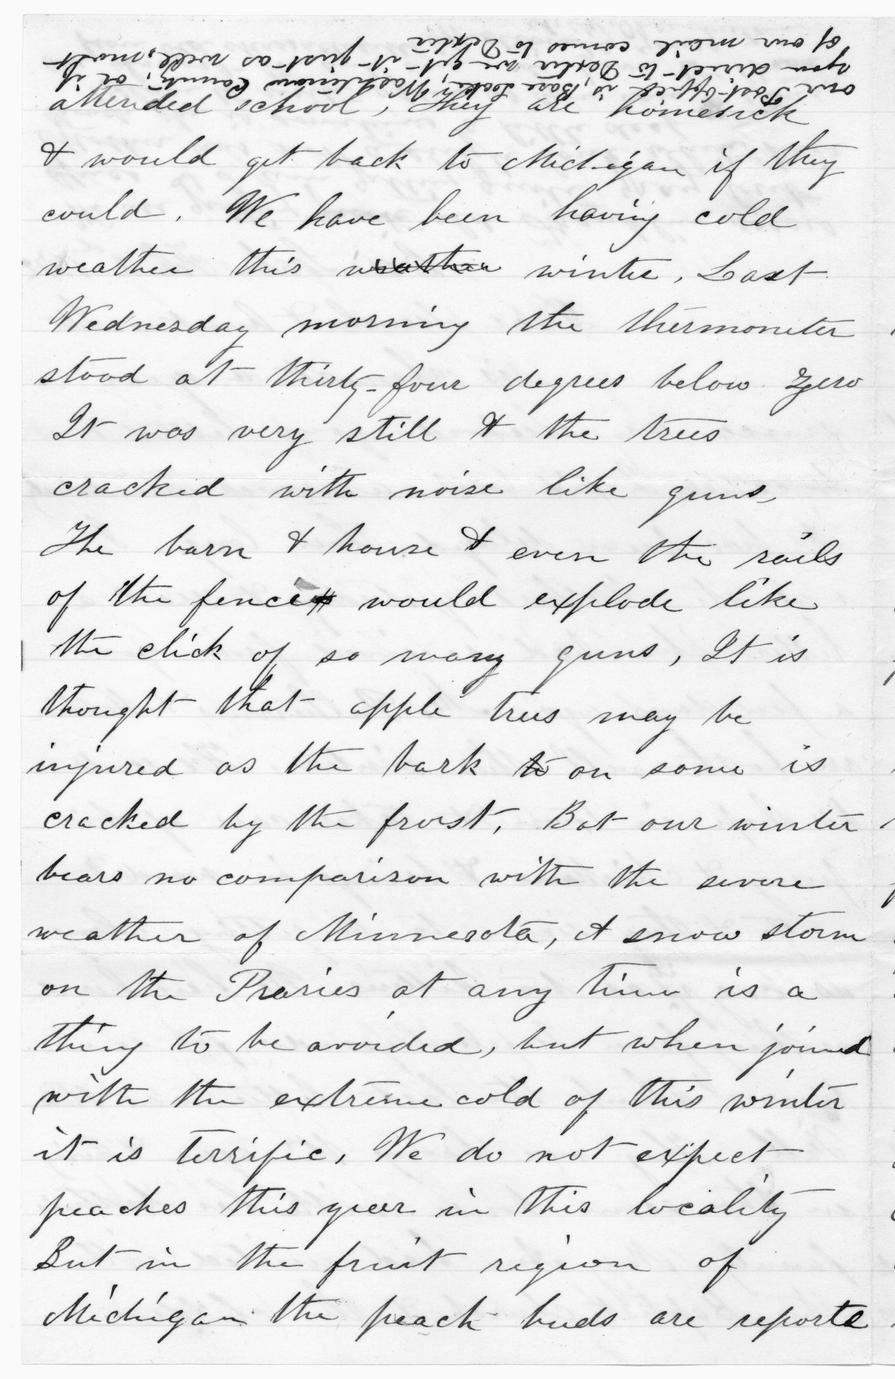 our Post-Office is, Base Lake, Washtenaw County; or if
you direct to Dexter we get it just as well, most
of our mail comes to Dexter
attended school; they are homesick
& would get back to Michigan if they
could. We have been having cold
weather this weather winter. Last
Wednesday morning the thermometer
stood at thirty-four degrees below zero
It was very still & the trees
cracked with noise like guns,
The barn & house & even the rails
of the fence would explode like
the click of so many guns, It is
thought that apple trees may be
injured as the bark to on some is
cracked by the frost. But our winter
bears no comparison with the severe
weather of Minnesota, A snow storm
on the Praries at any time is a
thing to be avoided, but when joined
with the extreme cold of this winter
it is terrific. We do not expect
peaches this year in this locality
But in the fruit region of
Michigan the peach buds are reporte